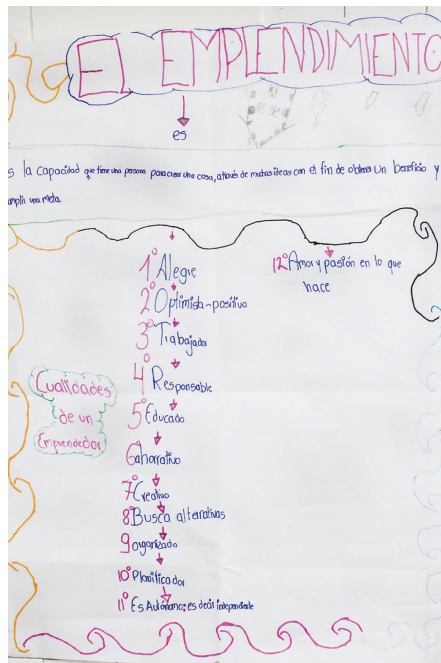 EL EMPLENDIMIENTO
es
s la capacidad que tiene una persona para crear una cosa, através de muchas ideas con el fin de obtener un beneficio y
umplir una meta.
1º Alegre
2º Optimista-positivo
3º Trabajador
4º Responsable
5º Educado
6º ahorrativo
7º Creativo
8º Busca alternativas
9 organizado
10º Planificador
11º Es Autónomo: es decir independiente
12º Amor y pasión en lo que
hace
Cualidades
de un
Emprendedor